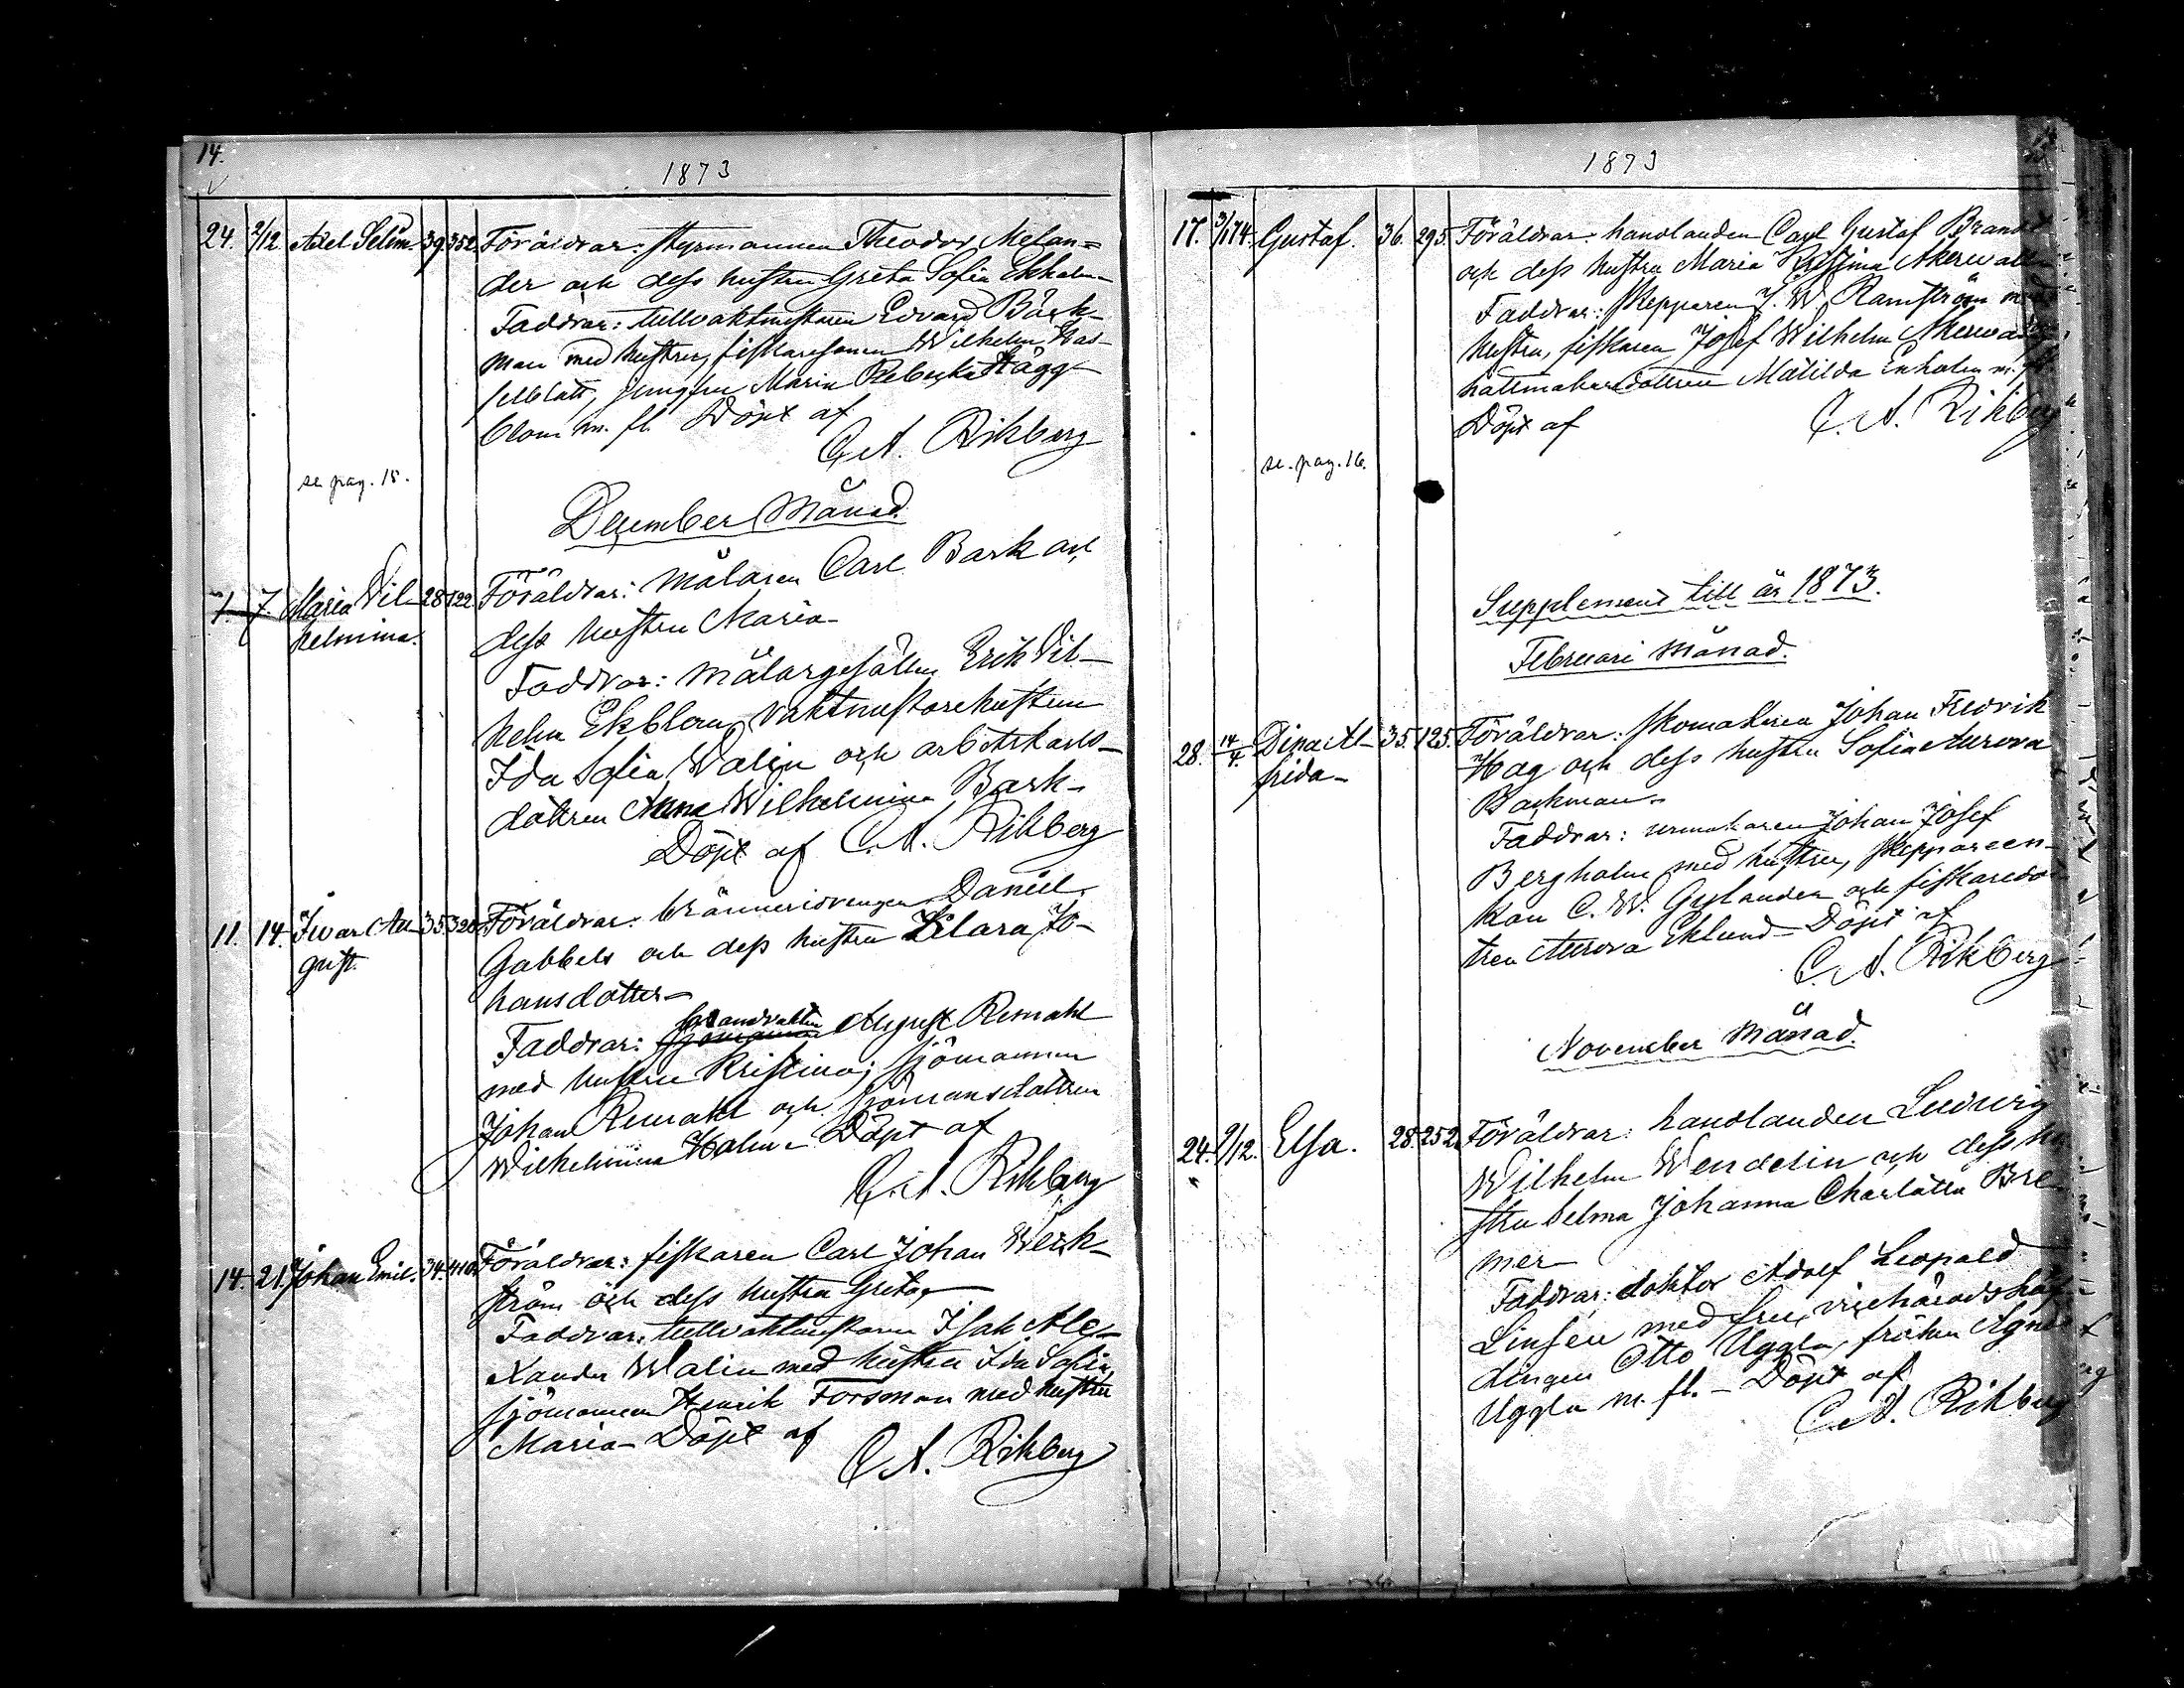 14.
1873
24. 2/12. Axel Selim. 39. 352. Föräldrar: styrmannen Theodor Melan=
der och dess hustru Greta Sofia Ekholm
Faddrar: tullvaktmästaren Edvard Bäck-
man med hustru, fiskaresonen Wilhelm Has-
selblatt, jungfru Maria Rebecka Hägg-
blom m. fl. Döpt af
C. A. Rikberg
se pag. 15.
December Månad.
7. 7. Maria Vil- 28. 122. Föräldrar: målaren Carl Bark och
helmina. dess hustru Maria-
Faddrar: målargesällen Erik Vil-
helm Ekblom, vaktmästarehustrun
Ida Sofia Walin och arbetskarls-
dottren Anna Wilhelmina Bark-
Döpt af C. A. Rikberg
11. 14. Ivar Au- 35. Föräldrar: brännneridrengen Daniel
gust. Gabbels och dess hustru Klara Jo-
hansdotter-
Faddrar: August Remahl
med hustru Kristina, sjömannen
Johan Remahl och sjömansdottren
Wilhelmina Holm- Döpt af
C. A. Rikberg
14. 21. Johan Emil. 34. 410. Föräldrar: fiskaren Carl Johan Werk-
ström och dess hustru Greta-
Faddrar: tullvaktmästaren Isak Ale-
xander Walin med hustru Ida Sofia,
sjömannen Henrik Forsman med hustru
Maria- Döpt af
C. A. Rikberg
1873
17. 3/1 74. Gustaf. 36. 295. Föräldrar: handlanden Carl Gustaf Brandt
och dess hustru Maria Kristina Åkerwall
Faddrar: skepparen J. W. Ramström med
hustru, fiskaren Josef Wilhelm Åkerwall
hattmakaredottren Matilda Enholm m. fl.
Döpt af
C. A. Rikberg
se pag. 16.
Supplement till år 1873.
Februari Månad.
28. 14/4. Dina Al- 35. 125. Föräldrar: skomakaren Johan Fredrik
frida- Hag och dess hustru Sofia Aurora
Backman-
Faddrar: urmakaren Johan Josef
Bergholm med hustru, skeppareen-
kan C. W. Gylander och fiskaredot-
tren Aurora Eklund- Döpt af
C. A. Rikberg
November Månad.
24. 9/12. Elsa. 28. 252. Föräldrar: handlanden Ludvig
Wilhelm Wendelin och dess hu-
stru Selma Johanna Charlotta Bre-
mer
Faddrar: doktor Adolf Leopold
Linsén med fru, vicehäradshöf-
dingen Otto Uggla, fröken Agnes
Uggla m. fl. - Döpt af
C. A. Rikberg